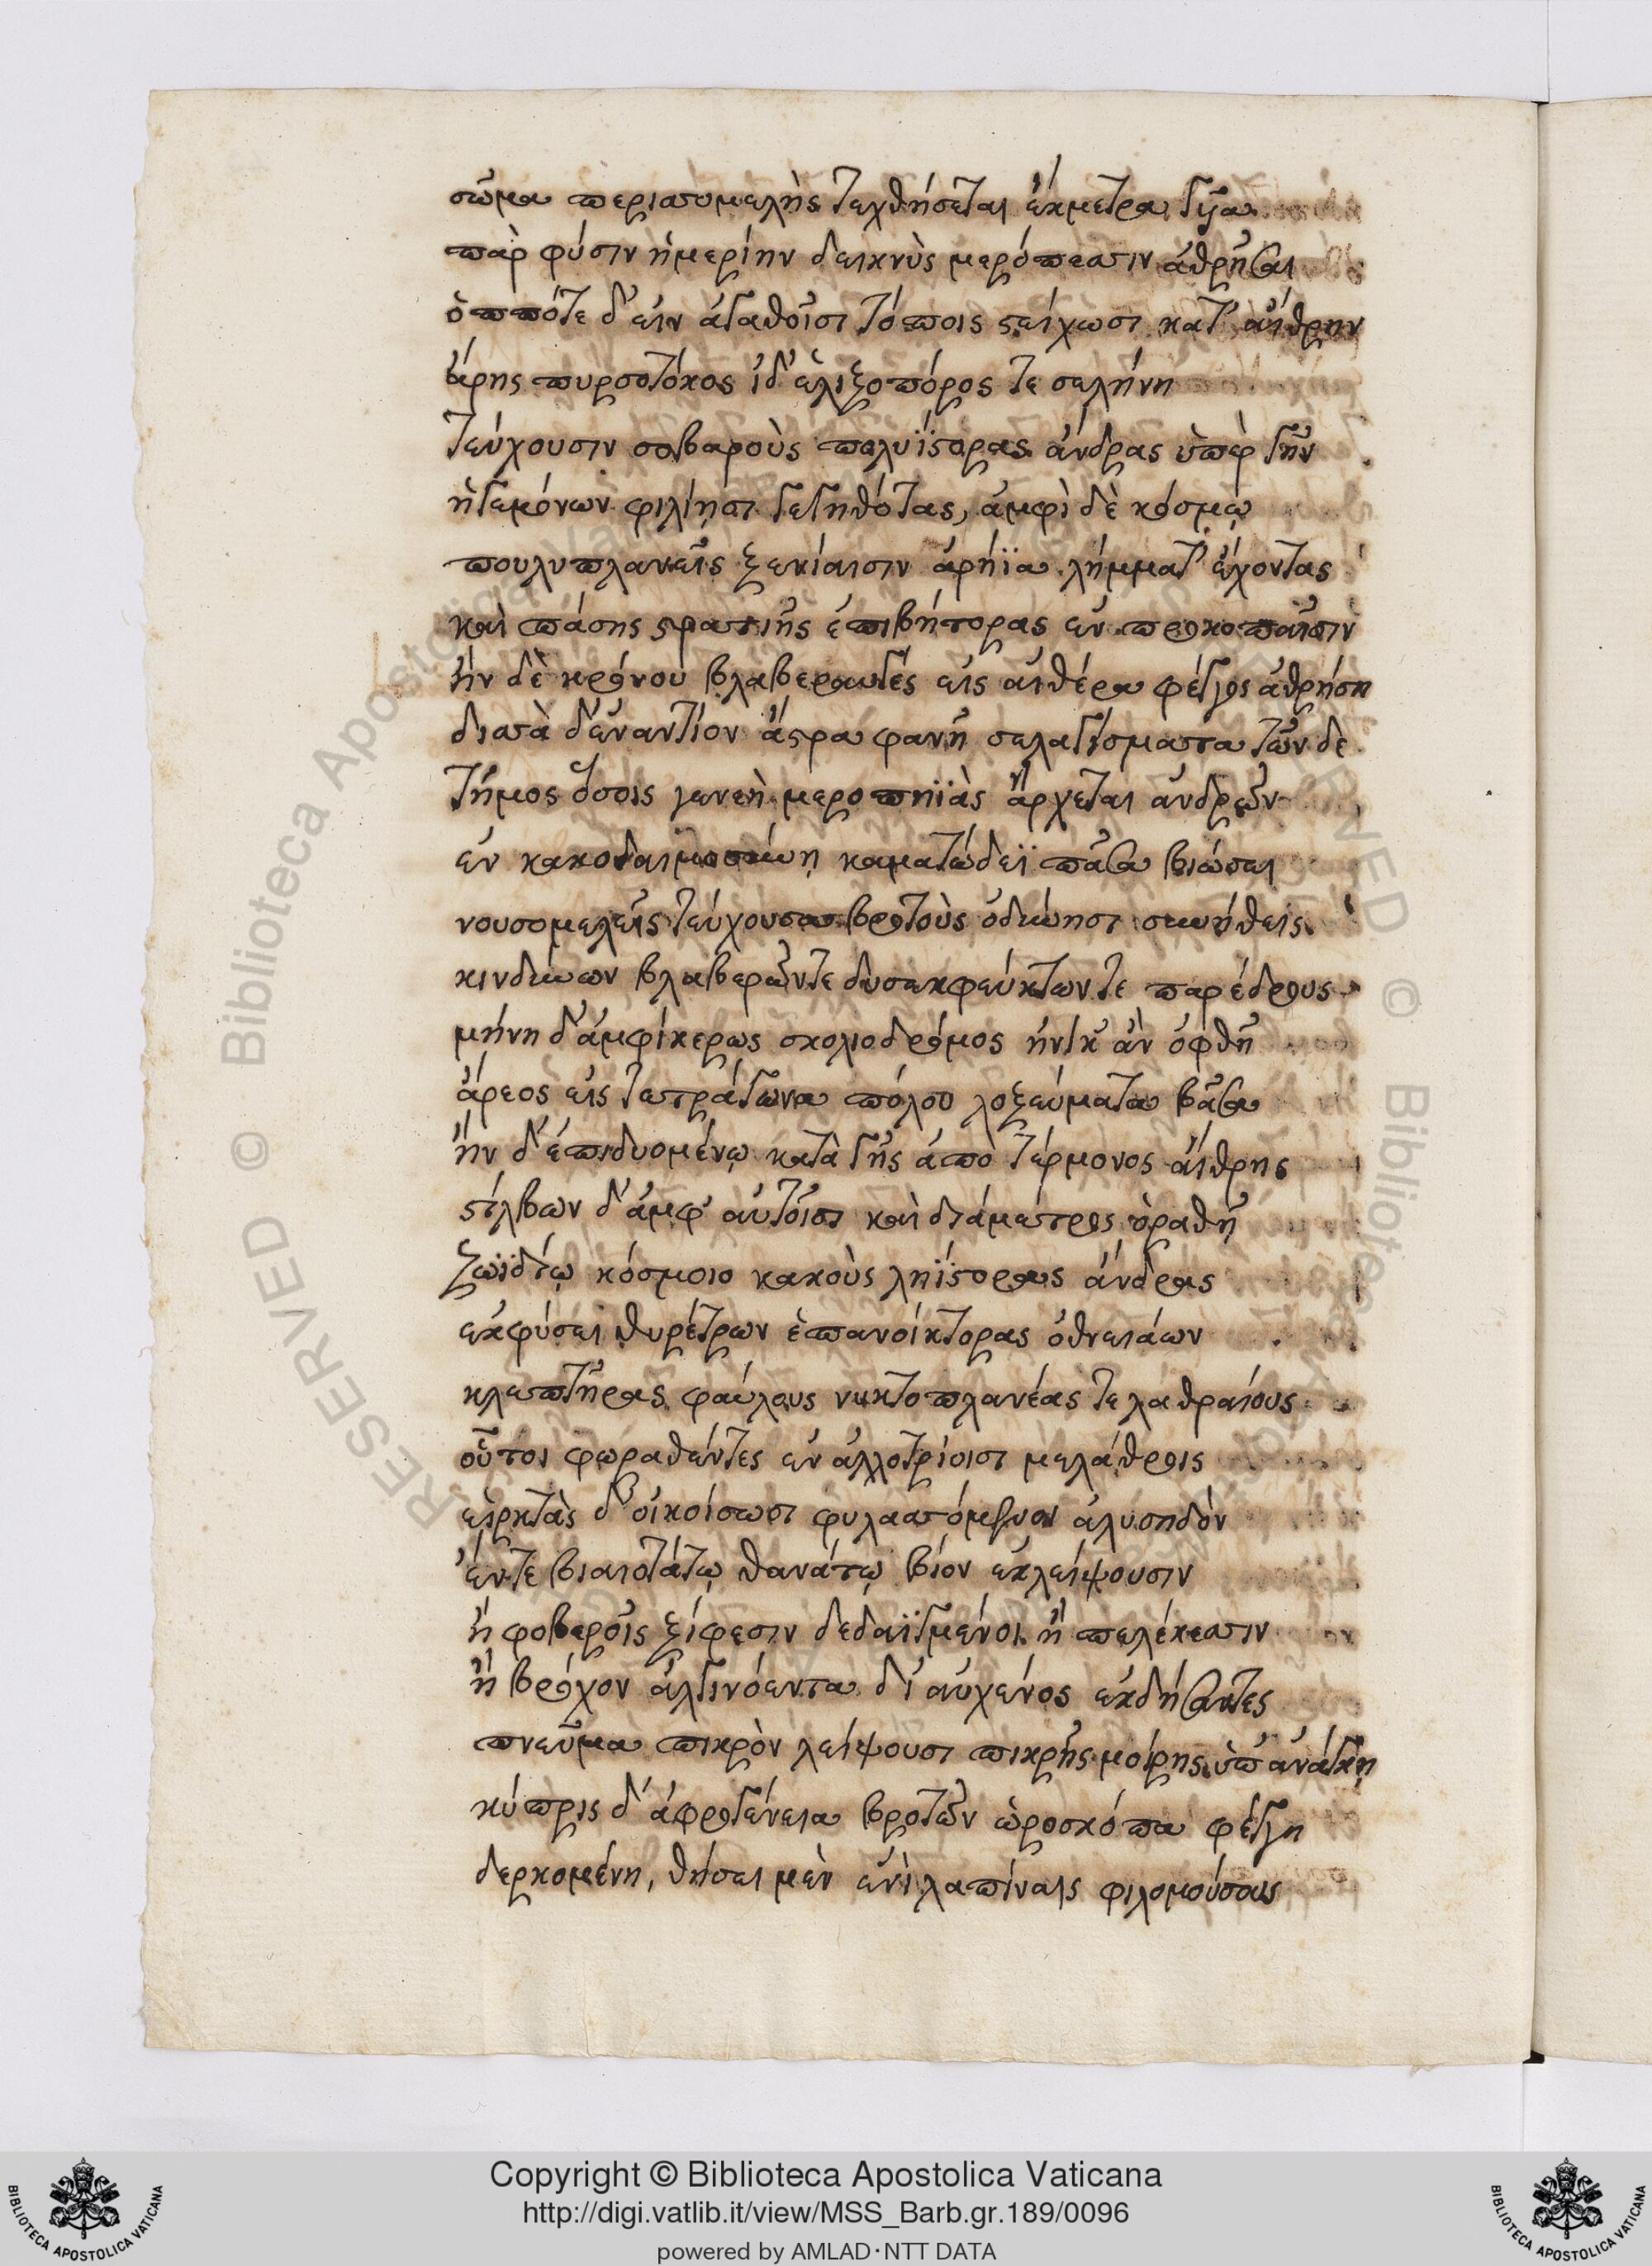 σῶμα περισσομελὴς τεχθήσεται ἔκμετρα γυῖα
παρ φύσιν ἡμερίην δεικνὺς μερόπεσσιν ἀθρῆσαι
ὁππότε δ' εἰν ἀγαθοῖσι τόποις στείχωσι κατ' αἴθρην
ἄρης πυρσοτόκος ἰδ' ἑλιξοπόρος τε σελήνη
τεύχουσιν σοβαροὺς πολυΐστορας ἄνδρας ὑπὲρ γῆν
ἡγεμόνων φιλίησι γεγηθότας, ἀμφὶ δὲ κόσμῳ
πουλυπλανεῖς ξενίαισιν ἀρήϊα λήμματ' ἔχοντας
καὶ πάσης στρατιῆς ἐπιβήτορας ἐν προκοπαῖσιν
ἢν δὲ κρόνου βλαβεραυγὲς εἰς αἰθέρα φέγγος ἀθρήση
δισσὰ δ' ἐναντίον ἄστρα φανῆ σελαγίσματα τῶν δε
τῆμος ὅσοις γενεὴ μεροπηϊὰς ἄρχεται ἀνδρῶν
ἐν κακοδαιμοσύνη καματώδεϊ πᾶσα βιώσει
νουσομελεῖς τεύχουσα βροτοὺς ὀδύνησι συνήθεις
κινδύνων βλαβερῶντε δυσεκφεύκτων τε παρέδρους
μήνη δ' ἀμφίκερως σκολιοδρόμος ἡνίκ' ἂν ὀφθῆ
ἄρεος εἰς τετράγωνα πόλου λοξεύματα βᾶσα
ἢν δ' ἐπιδυομένῳ κατὰ γῆς ἀπὸ τέρμονος αἴθρης
στίλβων δ' ἀμφ' αὐτοῖσι καὶ διάμετρος ὁραθῆ
ζωϊδίῳ κόσμοιο κακοὺς ληΐστορας ἄνδρας
ἐκφύσει θυρέτρων ἐπανοίκτορας ὀθνειάων
κλεπτῆρας φαύλους νυκτοπλανέας τε λαθραίους
οὗτοι φωραθέντες ἐν ἀλλοτρίοισι μελάθροις
εἱρκτὰς δ' οἰκοίσωσι φυλασσόμενοι ἁλυσηδόν
ἔν τε βιαιοτάτῳ θανάτῳ βίον ἐκλείψουσιν
ἢ φοβεροῖς ξίφεσιν δεδαϊγμένοι ἢ πελέκεσσιν
ἢ βρόχον ἀλγινόεντα δι' αὐχένος ἐκδήσαντες
πνεῦμα πικρὸν λείψουσι πικρῆς μοίρης ὑπ' ἀνάγκη
κύπρις δ' ἀφρογένεια βροτῶν ὡροσκόπα φέγγη
δερκομένη, θήσει μὲν ἐνὶ λαπίναις φιλομούσους
Copyright © Biblioteca Apostolica Vaticana
http://digi.vatlib.it/view/MSS_Barb.gr.189/0096
powered by AMLAD·NTT DATA